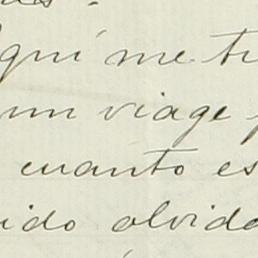 Aquí me ti
un viage
cuanto es
ido olvida